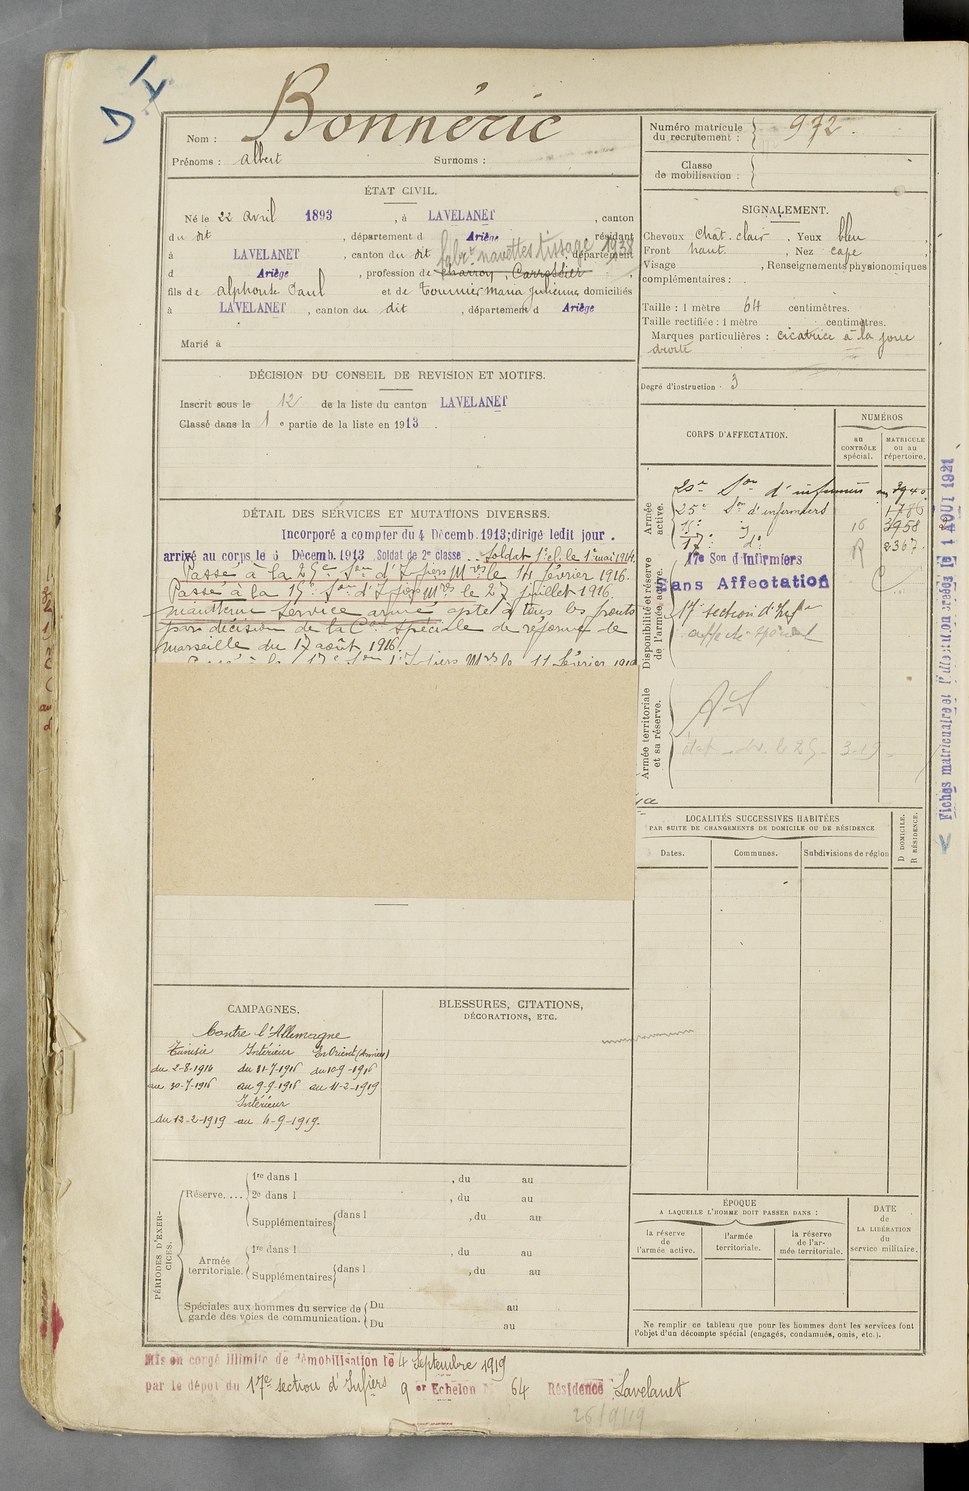 D
Bonnéric
Nom :
Prénoms : Albert Surnoms :
Numéro matricule du recrutement : 972
Classe de mobilisation :
ÉTAT CIVIL.
Né le 22 avril 1893, à LAVELANET, canton
du dit, département d Ariège, résidant
à LAVELANET, canton du dit, département
fabt navettes tissage 1938
d Ariège, profession de charron, Carrossier
fils de alphonse Paul et de Tournier maria Julienne, domiciliés
à LAVELANET, canton du dit, département d Ariège
Marié à
SIGNALEMENT.
Cheveux chat. clair, Yeux bleu
Front haut., Nez cave
Visage , Renseignements physionomiques
complémentaires :
Taille : 1 mètre 64 centimètres.
Taille rectifiée : 1 mètre centimètres.
Marques particulières : cicatrice à la joue
droite
Degré d'instruction : 3
DÉCISION DU CONSEIL DE REVISION ET MOTIFS.
Inscrit sous le 12 de la liste du canton LAVELANET
Classé dans la 1 e partie de la liste en 1913.
DÉTAIL DES SERVICES ET MUTATIONS DIVERSES.
Incorporé a compter du 4 Décemb. 1913; dirigé ledit jour.
arrivé au corps le 5 Décemb. 1913 Soldat de 2e classe. Soldat 1e cl. le 1er mai 1914.
Passé à la 25e Son d'Infiers Mres le 14 février 1916.
Passé à la 15e Son d'Infiers Mres le 27 juillet 1916.
maintenu Service armé apte à tous les fronts
par décision de la Con Spéciale de réforme de
Marseille du 17 août 1916.
Passé à la 17e Son d'Infiers Mres le 11 février 1919
CORPS D'AFFECTATION.
NUMÉROS
au CONTRÔLE spécial.
MATRICULE ou au répertoire.
Armée active.
Son d'infirmiers 3940
25e Son d'infirmiers 1786
15e d° 16 3958
17e d° R 2367
Disponibilité et réserve de l'armée active.
17e Son d'Infirmiers
Sans Affectation
17e section d'Infre
affecté spécial
Armée territoriale et sa réserve.
AS
Fiches matricule et l'allocution créées le 1 AOUT 1921
LOCALITÉS SUCCESSIVES HABITÉES
PAR SUITE DE CHANGEMENTS DE DOMICILE OU DE RÉSIDENCE
Dates.
Communes.
Subdivisions de région
D DOMICILE.
R RÉSIDENCE.
CAMPAGNES.
Contre l'Allemagne
Tunisie Intérieur En Orient (Armées)
du 2-8-1914 du 31-7-1916 du 10-9-1916
au 30-7-1916 au 9-9-1916 au 11-2-1919
Intérieur
du 12-2-1919 au 4-9-1919.
BLESSURES, CITATIONS,
DÉCORATIONS, ETC.
PÉRIODES D'EXERCICES.
Réserve....
1re dans l , du au
2e dans l , du au
Supplémentaires dans l , du au
Armée territoriale.
1re dans l , du au
Supplémentaires dans l , du au
Spéciales aux hommes du service de
garde des voies de communication.
Du au
Du au
ÉPOQUE
A LAQUELLE L'HOMME DOIT PASSER DANS :
la réserve de l'armée active.
l'armée territoriale.
la réserve de l'armée territoriale.
DATE de LA LIBÉRATION du service militaire.
Ne remplir ce tableau que pour les hommes dont les services font
l'objet d'un décompte spécial (engagés, condamnés, omis, etc.).
Mis en congé illimité de démobilisation le 4 Septembre 1919
par le dépot du 17e section d'Infiers 9 er Echelon N° 64 Résidence Lavelanet
26/9/19